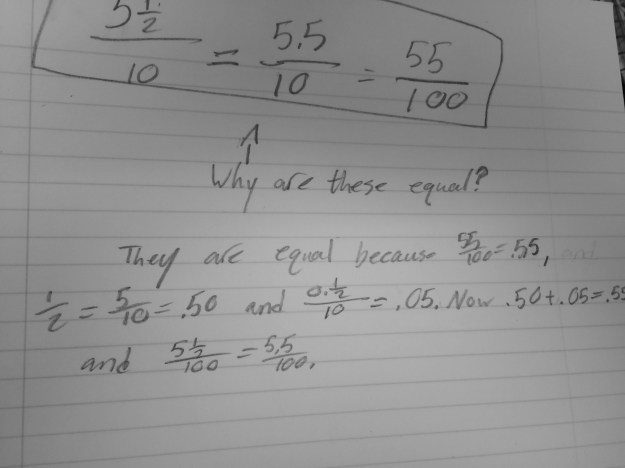 5 1/2 / 10 = 5.5 / 10 = 55 / 100
Why are these equal?
They are equal because 55/100 = .55, and
1/2 = 5/10 = .50 and 0.1/2 / 10 = .05. Now .50 + .05 = .55
and 5 1/2 / 100 = 5.5 / 100.